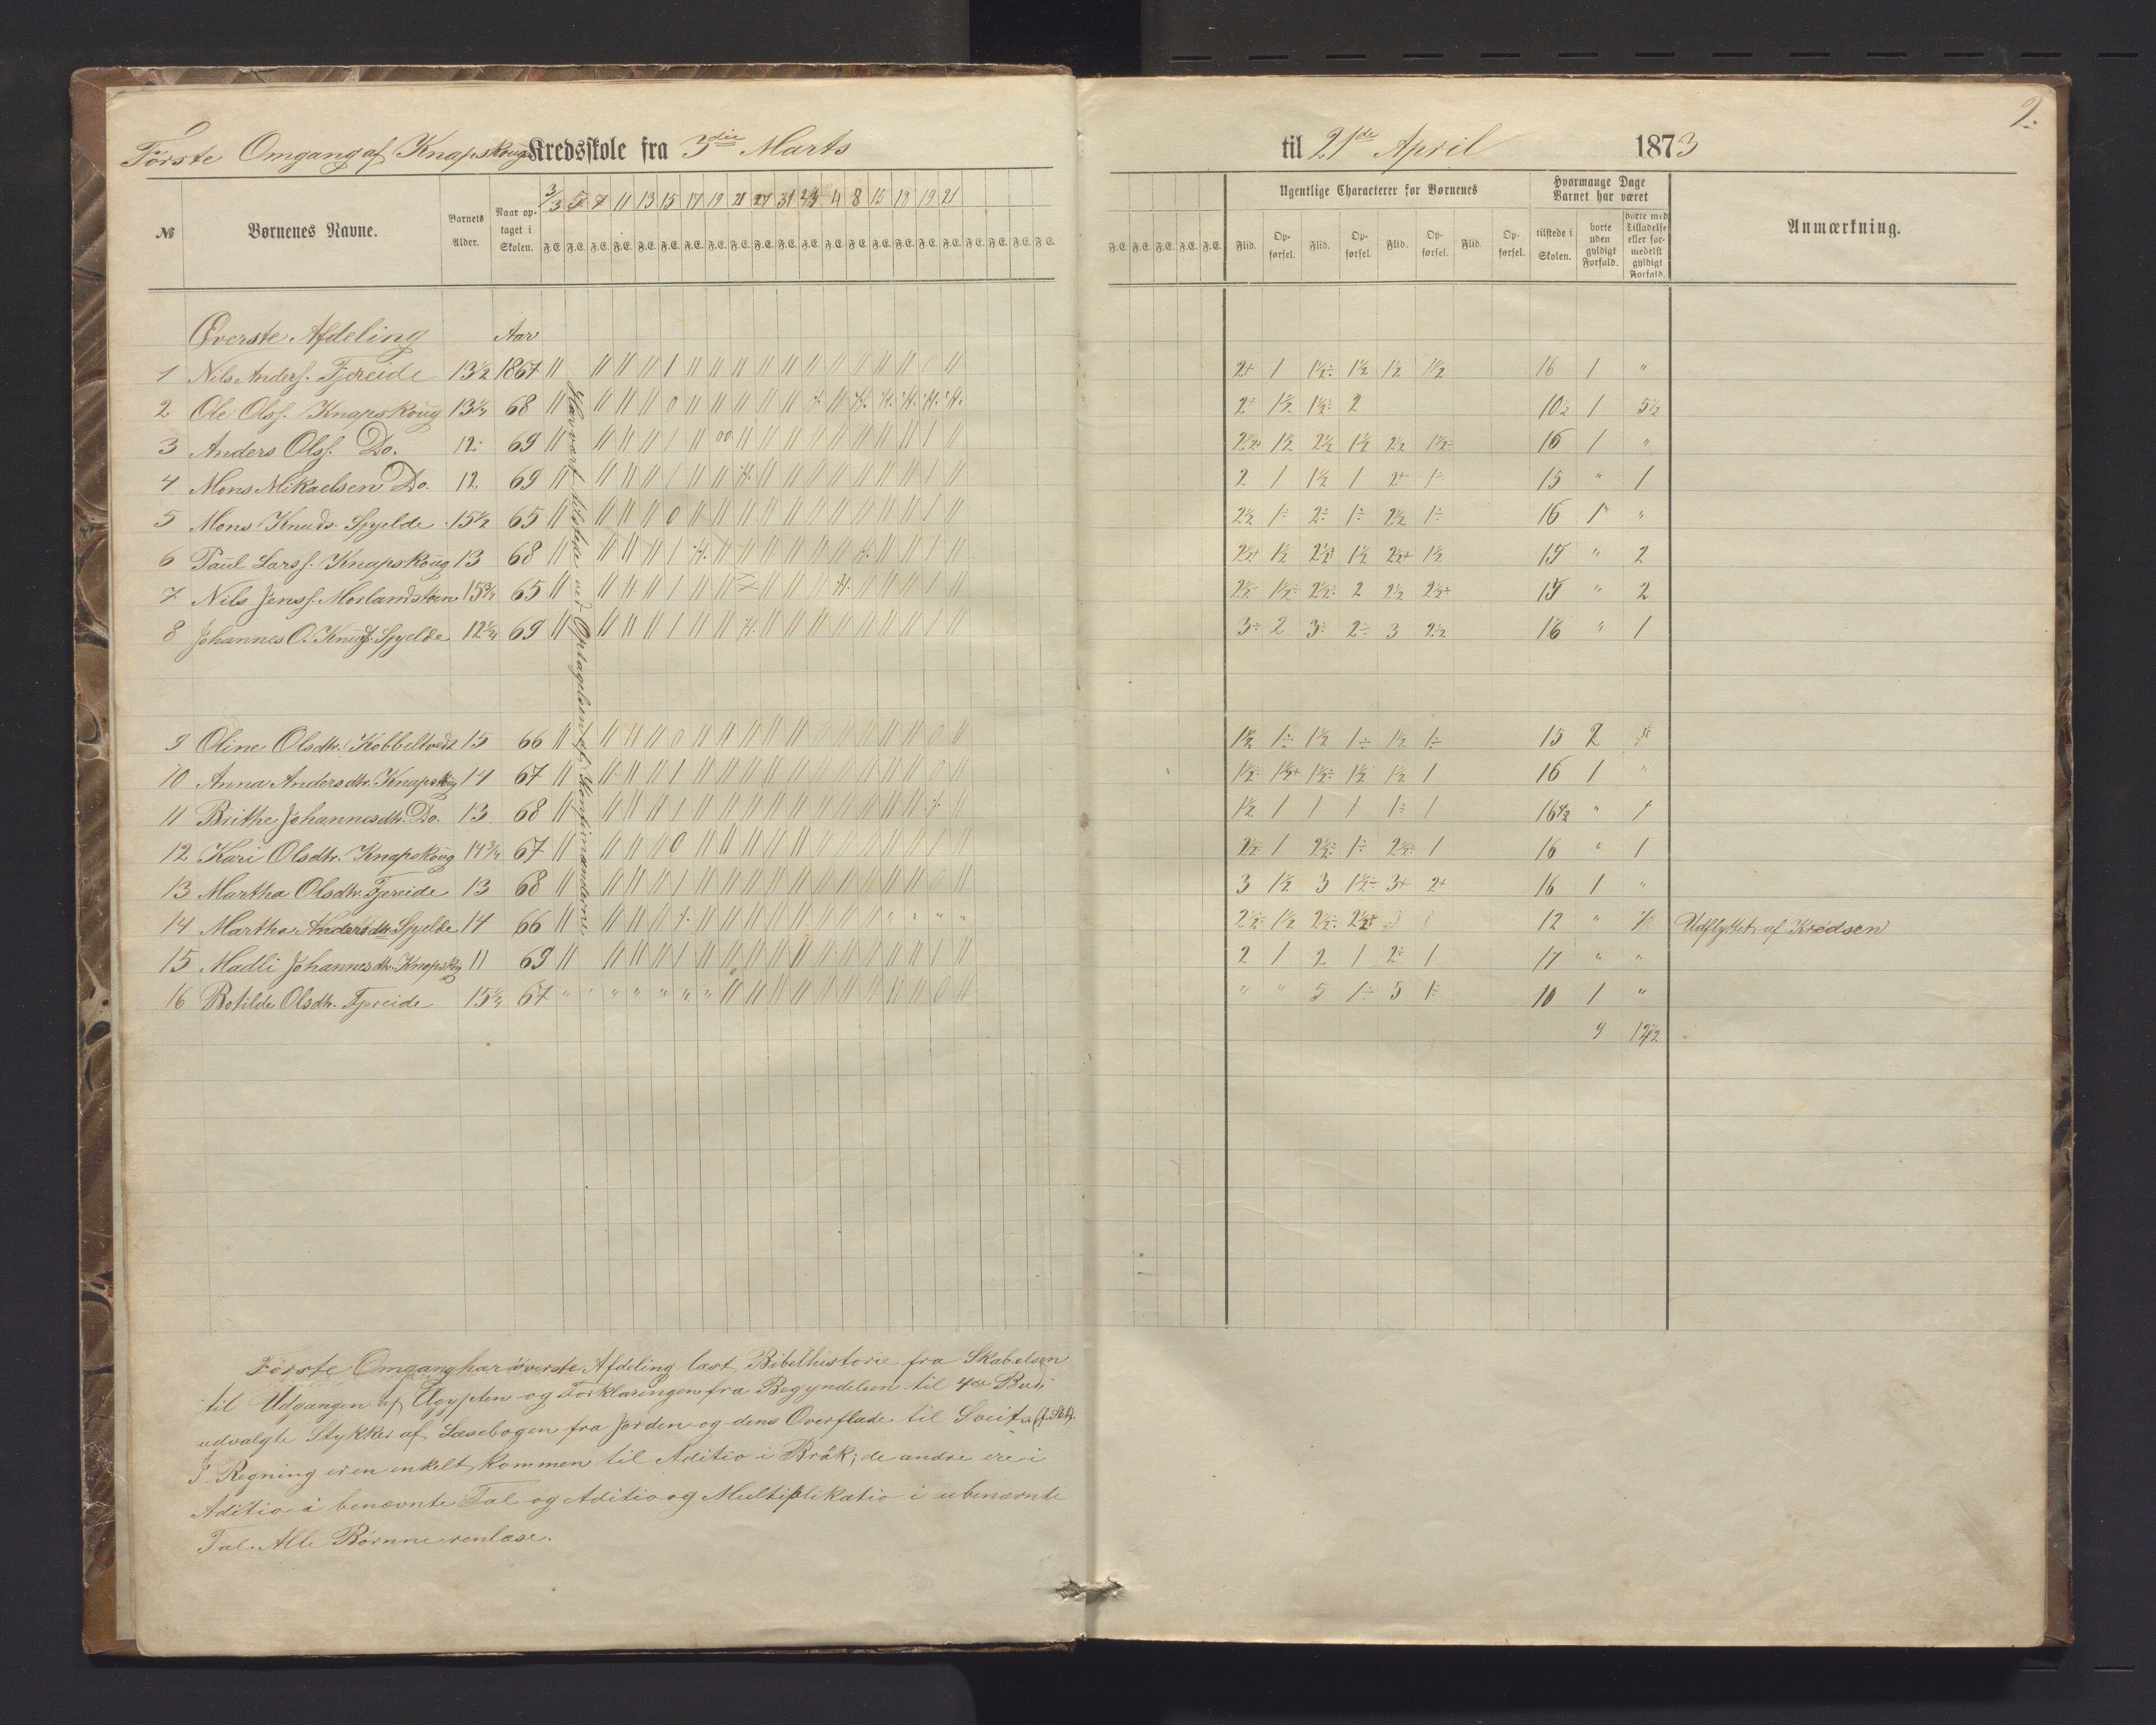 Første Omgang af Knapskoug Kredsskole fra 3die Marts til 21de April 1873
2.
№ Børnenes Navne. Barnets Alder. Naar optaget i Skolen. 3/3 5 7 11 13 15 17 19 21 27 31 4 8 15 18 19 21
F.E. F.E. F.E. F.E. F.E. F.E. F.E. F.E. F.E. F.E. F.E. F.E. F.E. F.E. F.E. F.E. F.E. F.E. F.E. F.E. F.E. F.E.
F.E. F.E. F.E. F.E. F.E.
Ugentlige Characterer for Børnenes
Flid. Opførsel. Flid. Opførsel. Flid. Opførsel. Flid. Opførsel.
Hvormange Dage Barnet har været
tilstede i Skolen. borte uden gyldigt Forfald. borte med Tilladelse eller formedelst gyldigt Forfald.
Anmærkning.
Øverste Afdeling Aar
1 Nils Anders. Fjereide 13½ 1867 2+ 1 1½÷ 1½ 1½ 1½ 16 1 "
2 Ole Ols. Knapskoug 13¼ 68 2+ 1½ 1½÷ 2 10½ 1 5½
3 Anders Ols. Do. 12 69 2½+ 1½ 2½ 1½ 2½ 1½÷ 16 1 "
4 Mons Mikaelsen Do. 12 69 2 1 1½ 1 2+ 1÷ 15 " 1
5 Mons Knuds. Spjelde 15½ 65 2½ 1÷ 2÷ 1÷ 2½ 1÷ 16 1 "
6 Paul Larss. Knapskoug 13 68 2½+ 1½ 2½+ 1½ 2½+ 1½ 15 " 2
7 Nils Jenss. Morlandstøen 15¾ 65 2½÷ 1½÷ 2½÷ 2 2½ 2½÷ 15 " 2
8 Johannes O. Knuds. Spjelde 12¼ 69 3÷ 2 3÷ 2÷ 3 2½ 16 " 1
Har vært tilstede ved Optagelsen af Konfirmanderne
9 Oline Olsdtr. Kobbeltvedt 15 66 1½ 1÷ 1½ 1÷ 1½ 1÷ 15 2 "
10 Anna Andersdtr. Knapskoug 14 67 1½÷ 1½+ 1½÷ 1½ 1½ 1 16 1 "
11 Brithe Johannesdtr. Do. 13 68 1½ 1 1 1 1÷ 1 16½ " 1
12 Kari Olsdtr. Knapskoug 14¾ 67 2½÷ 1 2½÷ 1÷ 2½÷ 1 16 " 1
13 Martha Olsdtr. Fjereide 13 68 3 1½ 3 1½÷ 3+ 2+ 16 1 "
14 Martha Andersdtr. Spjelde 14 66 2½÷ 1½ 2½÷ 2½+ 12 " Udflyttet af Kredsen
15 Madli Johannesdtr. Knapskg 11 69 2 1 2 1 2÷ 1 17 " "
16 Botilde Olsdtr. Fjereide 15½ 67 " " 5 1÷ 5 1÷ 10 1 "
9 12½
Første Omgang har øverste Afdeling læst Bibelhistorie fra Skabelsen
til Udgangen af Ægypten og Forklaringen fra Begyndelsen til 4de Bud;
udvalgte Stykker af Læsebogen fra Jorden og dens Overflade til Sveits
I Regning er en enkelt kommen til Aditio i Bråk; de andre ere i
Aditio i benævnte Tal og Aditio og Multiplikatio i ubenævnte
Tal. Alle Børnne renlæse.